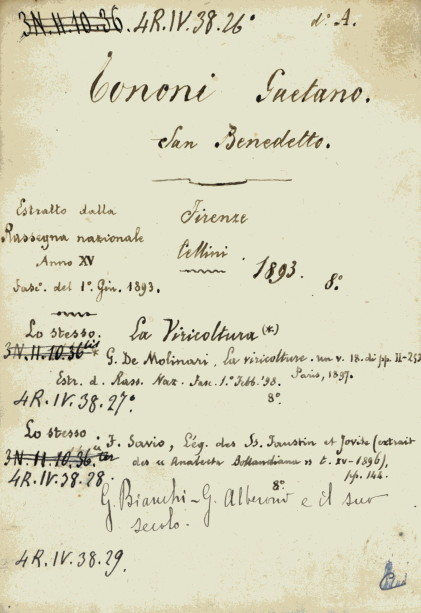 3N.II.10.36. 4R.IV.38.26° d° A.
Tononi Gaetano.
San Benedetto.
Estratto dalla
Rassegna nazionale
Anno XV
Fasc. del 1°. Giu. 1893.
Firenze
Cellini.
1893. 8°.
Lo stesso. La Viricoltura (*)
3N.II.10.36 bis * G. De Molinari, La viriculture. un v. 18. di pp. II-253
Estr. d. Rass. Naz. Fasc. 1.° Febb. '98. Paris, 1897.
4R.IV.38.27° 8°.
Lo stesso
F. Savio, Lég. des Ss. Faustin et Jovite (extrait
3N.II.10.36. ter des « Analecta Bollandiana » t. XV-1896),
4R.IV.38.28. 8° pp. 146.
G. Bianchi - G. Alberoni e il suo
secolo.
4R.IV.38.29.